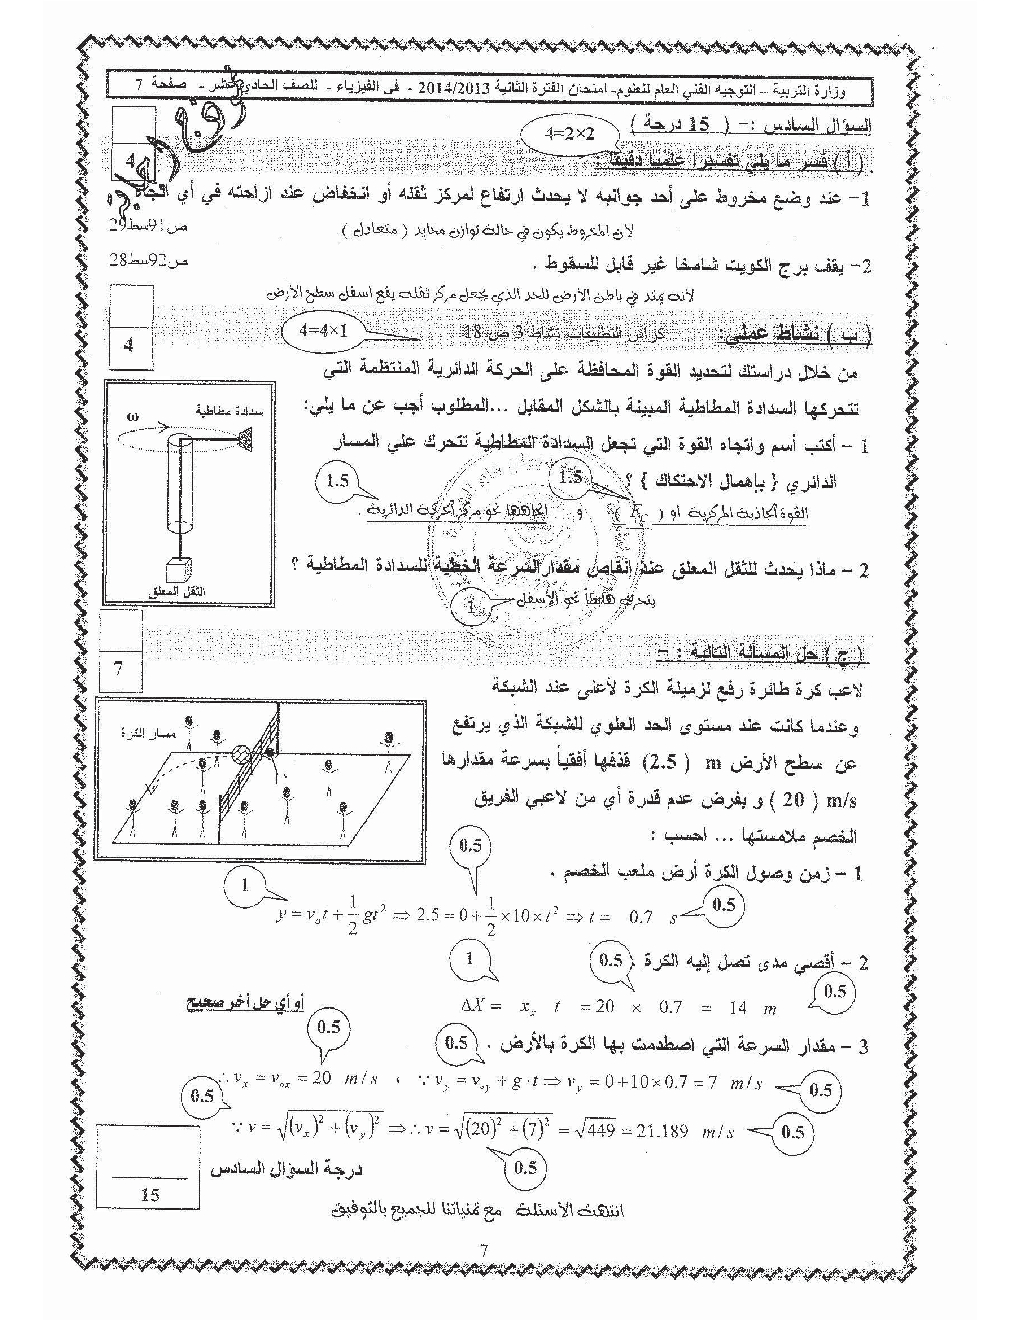 وزارة التربية – التوجيه الفني العام للعلوم- امتحان الفترة الثانية 2014/2013 - في الفيزياء - للصف الحادي عشر - صفحة 7
السؤال السادس :- ( 15 درجة )
4=2×2
4
( أ ) فسر ما يلي تفسيرا علميا دقيقا :
1- عند وضع مخروط على أحد جوانبه لا يحدث ارتفاع لمركز ثقله أو انخفاض عند ازاحته في أي اتجاه
لأن المخروط يكون في حالة توازن محايد ( متعادل )
ص91سط29
2- يقف برج الكويت شامخا غير قابل للسقوط .
ص92سط28
لأنه يمتد في باطن الأرض للحد الذي يجعل مركز ثقله يقع أسفل سطح الأرض
( ب ) نشاط عملي: كراس التطبيقات نشاط 3 ص 18
4=4×1
4
من خلال دراستك لتحديد القوة المحافظة على الحركة الدائرية المنتظمة التي
تتحركها السدادة المطاطية المبينة بالشكل المقابل ...المطلوب أجب عن ما يلي:
سدادة مطاطية
ω
الثقل المعلق
1 – أكتب أسم واتجاه القوة التي تجعل السدادة المطاطية تتحرك على المسار
الدائري { بإهمال الاحتكاك } ؟
1.5
1.5
القوة الجاذبة المركزية أو ( Fc ) و اتجاهها نحو مركز الحركة الدائرية .
2 – ماذا يحدث للثقل المعلق عند إنقاص مقدار السرعة الخطية للسدادة المطاطية ؟
يتحرك هابطاً نحو الأسفل
1
( ج ) حل المسألة التالية : -
7
لاعب كرة طائرة رفع لزميلة الكرة لأعلى عند الشبكة
وعندما كانت عند مستوى الحد العلوي للشبكة الذي يرتفع
عن سطح الأرض m ( 2.5) قذفها أفقياً بسرعة مقدارها
m/s ( 20 ) و بفرض عدم قدرة أي من لاعبي الفريق
الخصم ملامستها ... احسب :
مسار الكرة
1 – زمن وصول الكرة أرض ملعب الخصم .
0.5
1
0.5
y = v₀t + 1/2 gt² ⇒ 2.5 = 0 + 1/2 ×10×t² ⇒ t = 0.7 s
2 – أقصي مدى تصل إليه الكرة .
0.5
1
0.5
ΔX = xₓ t = 20 × 0.7 = 14 m
أو أي حل آخر صحيح
3 – مقدار السرعة التي اصطدمت بها الكرة بالأرض .
0.5
0.5
∴ vₓ = v₀ₓ = 20 m/s ، ∵ v_y = v_oy + g·t ⇒ v_y = 0+10×0.7 = 7 m/s
0.5
0.5
∵ v = √(vₓ)² + (v_y)² ⇒ ∴ v = √(20)² + (7)² = √449 = 21.189 m/s
0.5
0.5
درجة السؤال السادس
15
انتهت الأسئلة مع تمنياتنا للجميع بالتوفيق
7